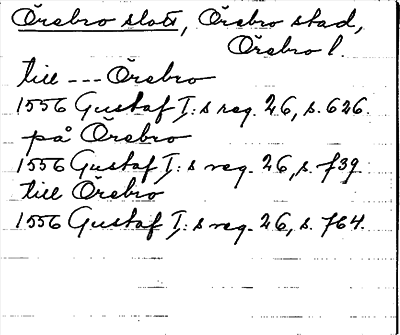 Örebro slott, Örebro stad,
Örebro l.
till --- Örebro
1556 Gustaf I:s reg. 26, s. 626.
på Örebro
1556 Gustaf I:s reg. 26, s. 739.
till Örebro
1556 Gustaf I:s reg. 26, s. 764.